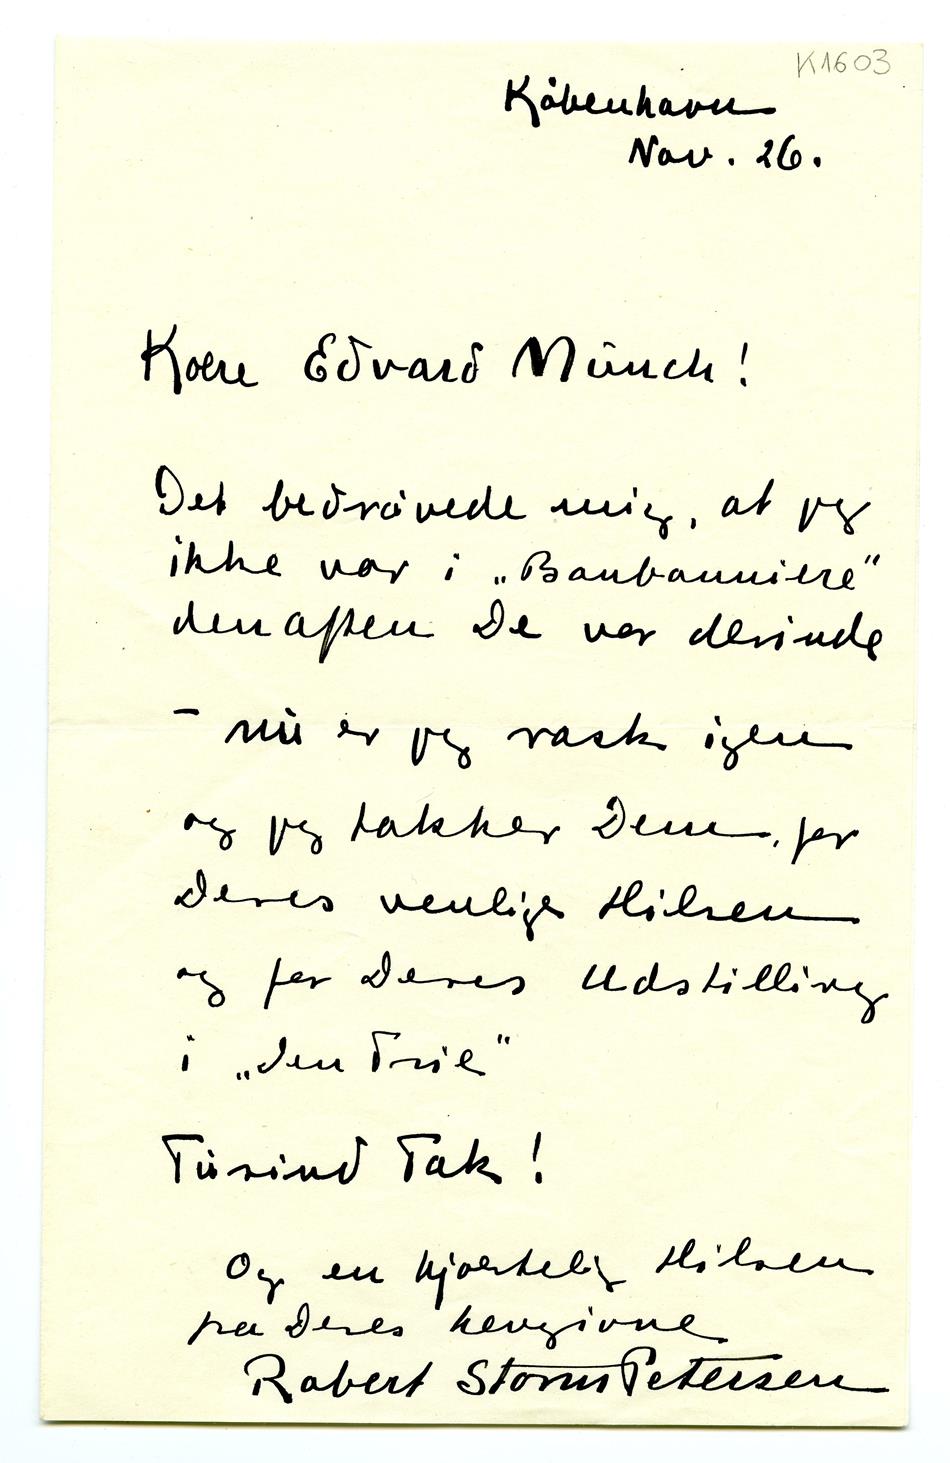 K1603
København
Nov. 26.
Kære Edvard Münch!
Det bedrøvede mig, at jeg
ikke var i „Bonbonniere"
den aften De var derinde
- nu er jeg rask igen
og jeg takker Dem, for
Deres venlige Hilsen
og for Deres Udstilling
i „den Frie"
Tusind Tak!
Og en hjærtelig Hilsen
fra Deres hengivne
Robert Storm Petersen